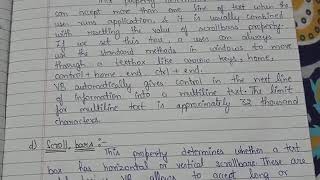 can accept more than one line of text when the
user runs application & it is usually combined
with resetting the value of scrollbars property.
If we set this true a user can always
use the standard methods in windows to move
through a textbox like arrow keys, home,
control + home, end, ctrl + end.
VB automatically gives control in the next line
of information into a multiline text. The limit
for multiline text is approximately 32 thousand
characters.
d) Scroll bars :-
This property determines whether a text
box has horizontal or vertical scrollbars. These are
VB allows to accept long or